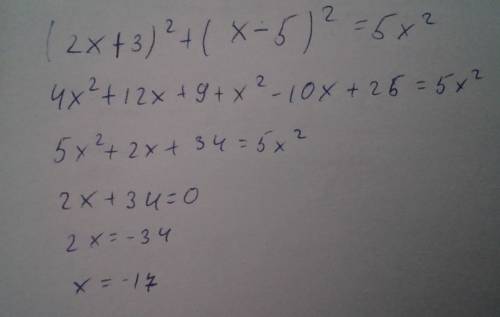 (2x+3)²+(x-5)²=5x²
4x²+12x+9+x²-10x+25=5x²
5x²+2x+34=5x²
2x+34=0
2x=-34
x=-17